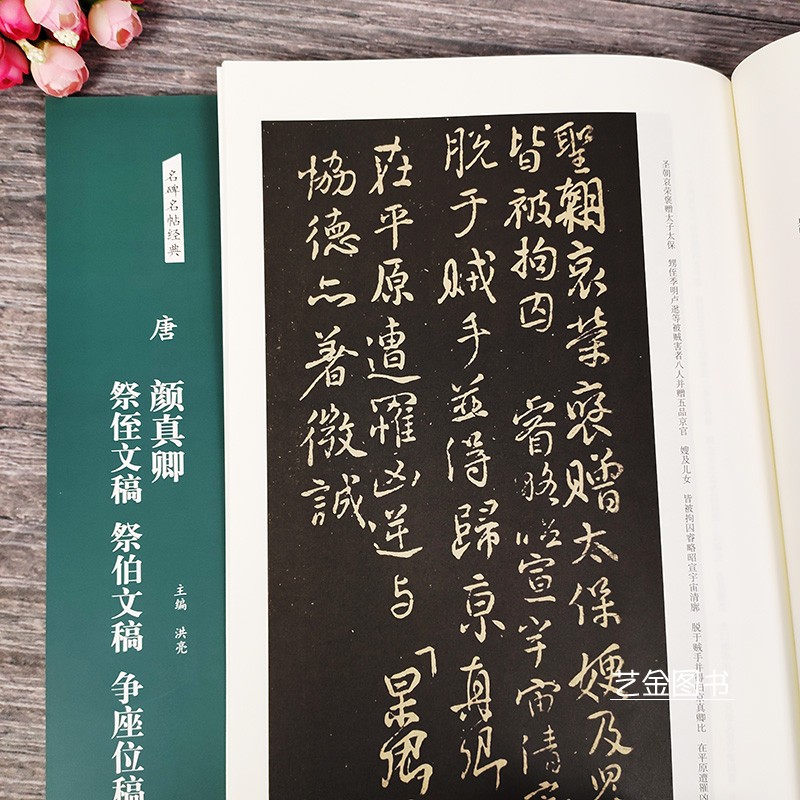 名碑名帖经典
唐
颜真卿
祭侄文稿 祭伯文稿 争座位稿
主编 洪亮
聖朝哀榮褒贈太保嫂及
皆被拘囚 睿略昭宣宇宙清
脱于贼手並得歸京真卿
在平原遭罹凶逆与杲卿
協德亦著微誠
圣朝哀荣褒赠太子太保 甥侄季明卢逖等被贼害者八人并赠五品京官 嫂及儿女 皆被拘囚睿略昭宣宇宙清廓 脱于贼手并得归京真卿比 在平原遭罹凶
艺金图书